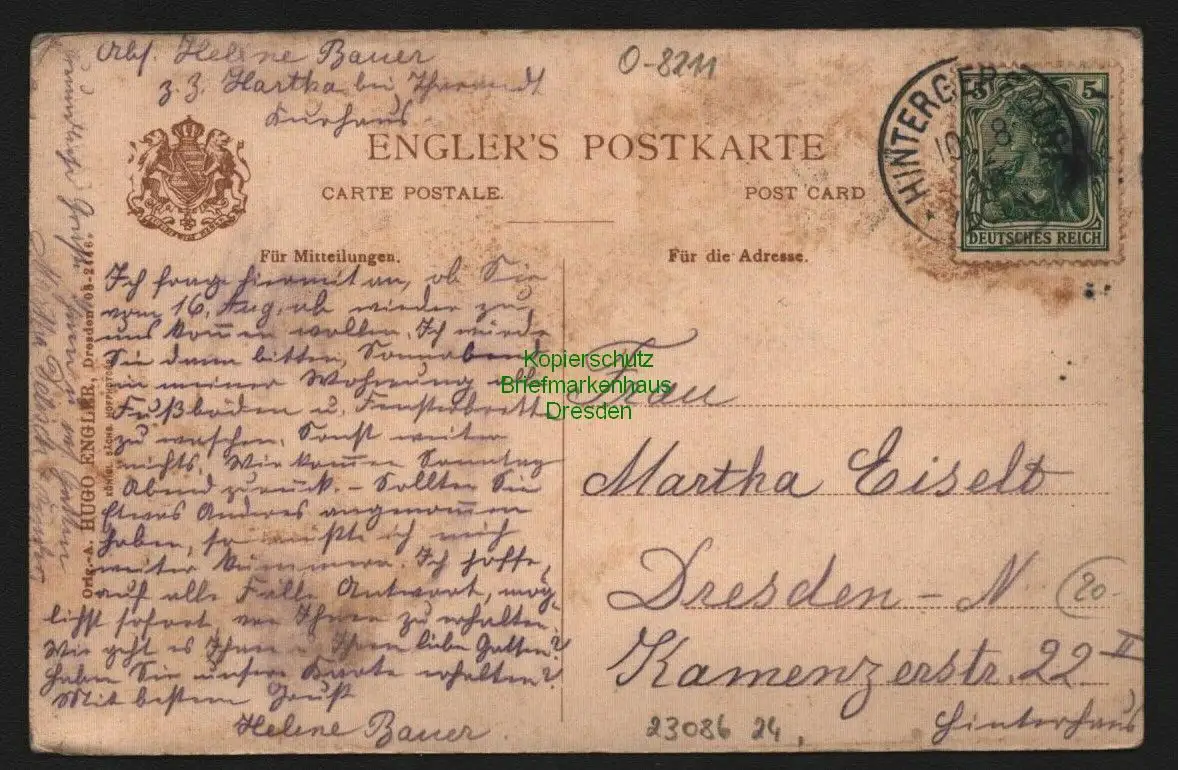 Abs. Helene Bauer
z. Z. Hartha bei Tharandt
Kurhaus
O-8211
ENGLER'S POSTKARTE
CARTE POSTALE.
POST CARD
HINTERGERSDORF
10 8
5 5
DEUTSCHES REICH
Für Mitteilungen.
Für die Adresse.
Ich frage hiermit an, ob Sie
vom 16. Aug. ab wieder zu
uns kom̅en wollen. Ich würde
Sie dann bitten, Sonnabend
in meiner Wohnung die
Fußböden u. Fensterbretter
zu waschen. Sonst weiter
nichts. Wir kom̅en Sonntag
Abend zurück. – Sollten Sie
Etwas Anderes angenom̅en
haben, so müßte ich mich
weiter kümmern. Ich hoffe,
auf alle Fälle Antwort, mög-
lichst sofort von Ihnen zu erhalten.
Wie geht es Ihnen u. Ihrem lieben Gatten?
Haben Sie unsere Karte erhalten?
Mit bestem Gruß
Helene Bauer.
Orig.-A. HUGO ENGLER, Dresden 08-2446.
KÖNIGL. SÄCHS. HOFPHOTOGR.
Kopierschutz
Briefmarkenhaus
Dresden
Frau
Martha Eiselt
Dresden – N. 20
Kamenzerstr. 22 II
Hinterhaus
23086 24